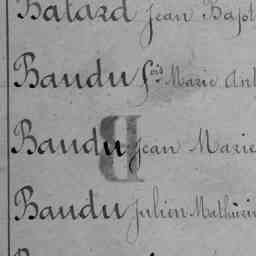 Batard Jean Bapt
Baudu fois Marie Ant
Baudu Jean Marie
Baudu Julien Mathurin